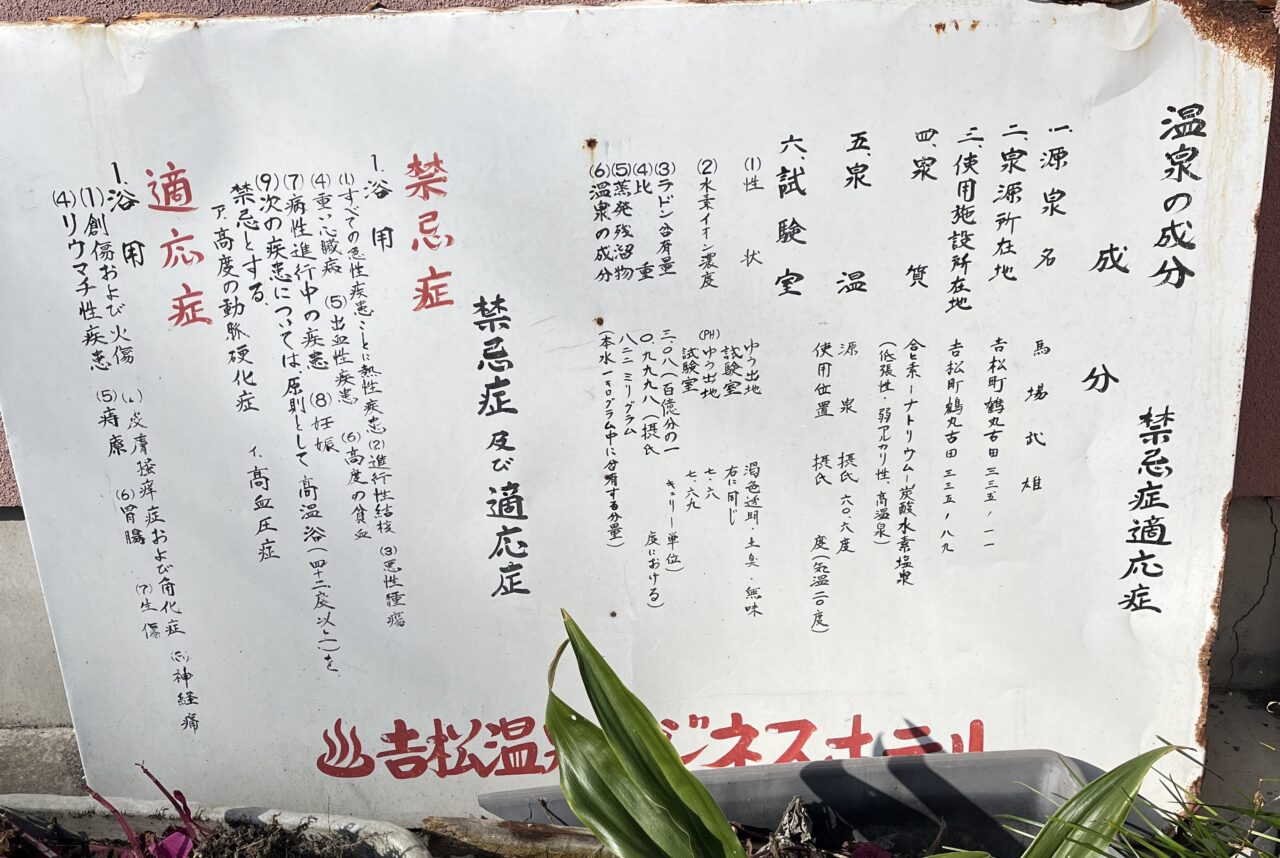 温泉の成分 禁忌症適応症
成分
一、源泉名 馬場武雄
二、泉源所在地 吉松町鶴丸古田三三五ノ一一
三、使用施設所在地 吉松町鶴丸古田三三五ノ八九
四、泉質 含ヒ素ーナトリウムー炭酸水素塩泉
(低張性・弱アルカリ性、高温泉)
五、泉温 源泉 摂氏六〇.六度
使用位置 摂氏 度(気温二〇度)
六、試験室
(1)性状 ゆう出地 渇色透明・土臭・無味
試験室 右に同じ
(2)水素イオン濃度 (PH)ゆう出地 七・六
試験室 七.六九
(3)ラドン含有量 三.〇八(百億分の一キュリー単位)
(4)比重 〇.九九九八(摂氏 度における)
(5)蒸発残溜物 八二二ミリグラム
(6)温泉の成分 (本水一キログラム中に含有する分量)
禁忌症及び適応症
禁忌症
1.浴用
(1)すべての急性疾患ことに熱性疾患(2)進行性結核(3)悪性腫瘍
(4)重い心臓病(5)出血性疾患(6)高度の貧血
(7)病性進行中の疾患(8)妊娠
(9)次の疾患については、原則として高温浴(四十二度以上)を
禁忌とする.
ア.高度の動脈硬化症 イ.高血圧症
適応症
1.浴用
(1)創傷および火傷 皮膚掻痒症および角化症 神経痛
(4)リウマチ性疾患(5)痔(6)胃腸(7)生傷
吉松温 ジネスホテル